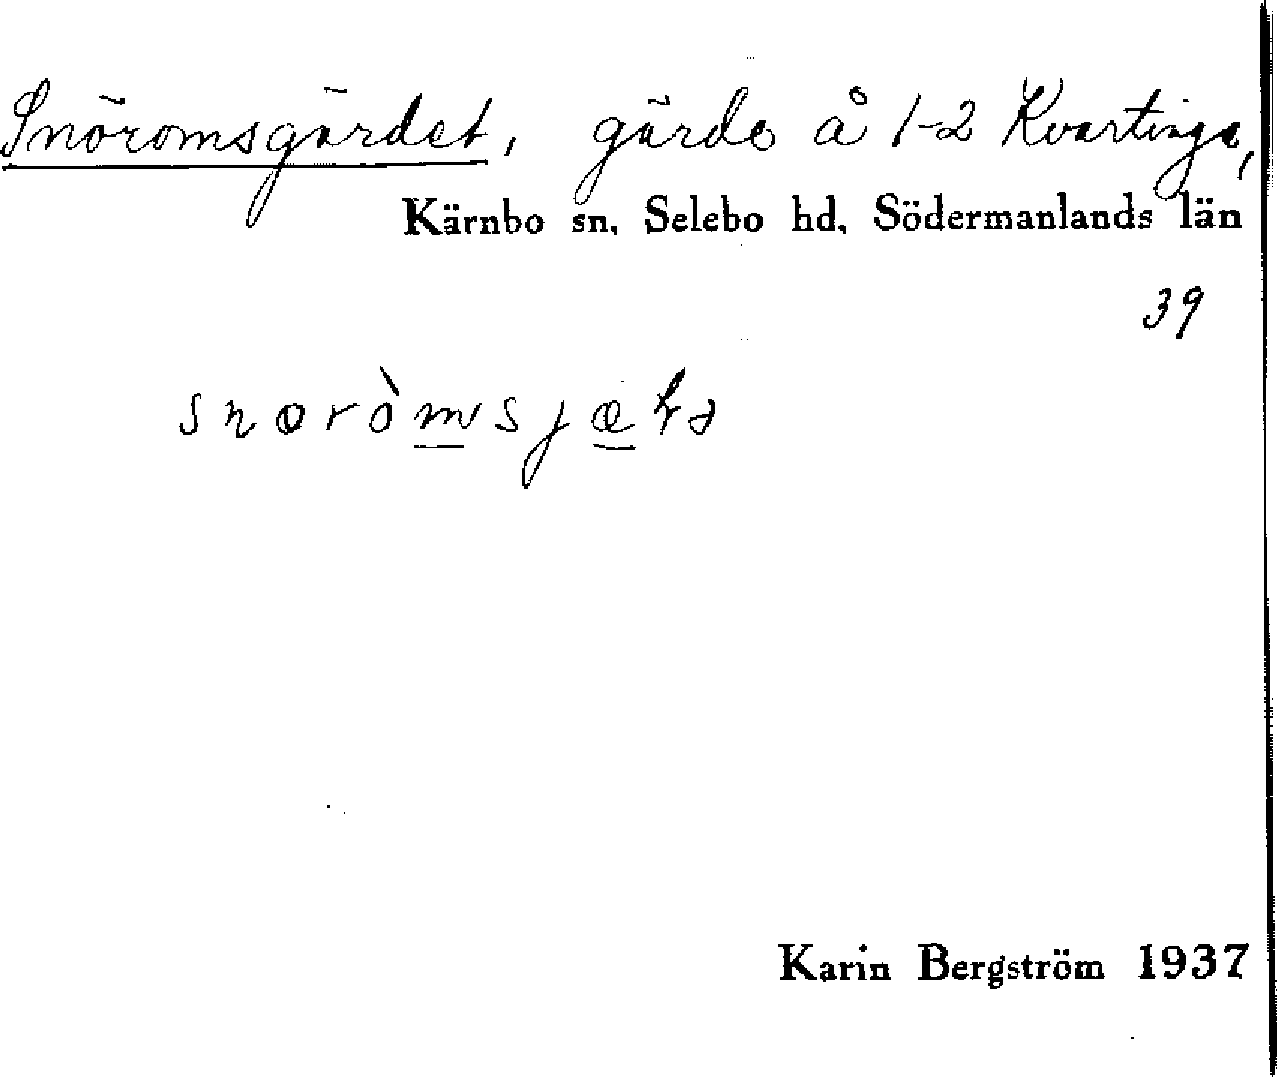 Snöromsgärdet, gärde å 1-2 Kvartinge,
Kärnbo sn, Selebo hd, Södermanlands län
39
Karin Bergström 1937